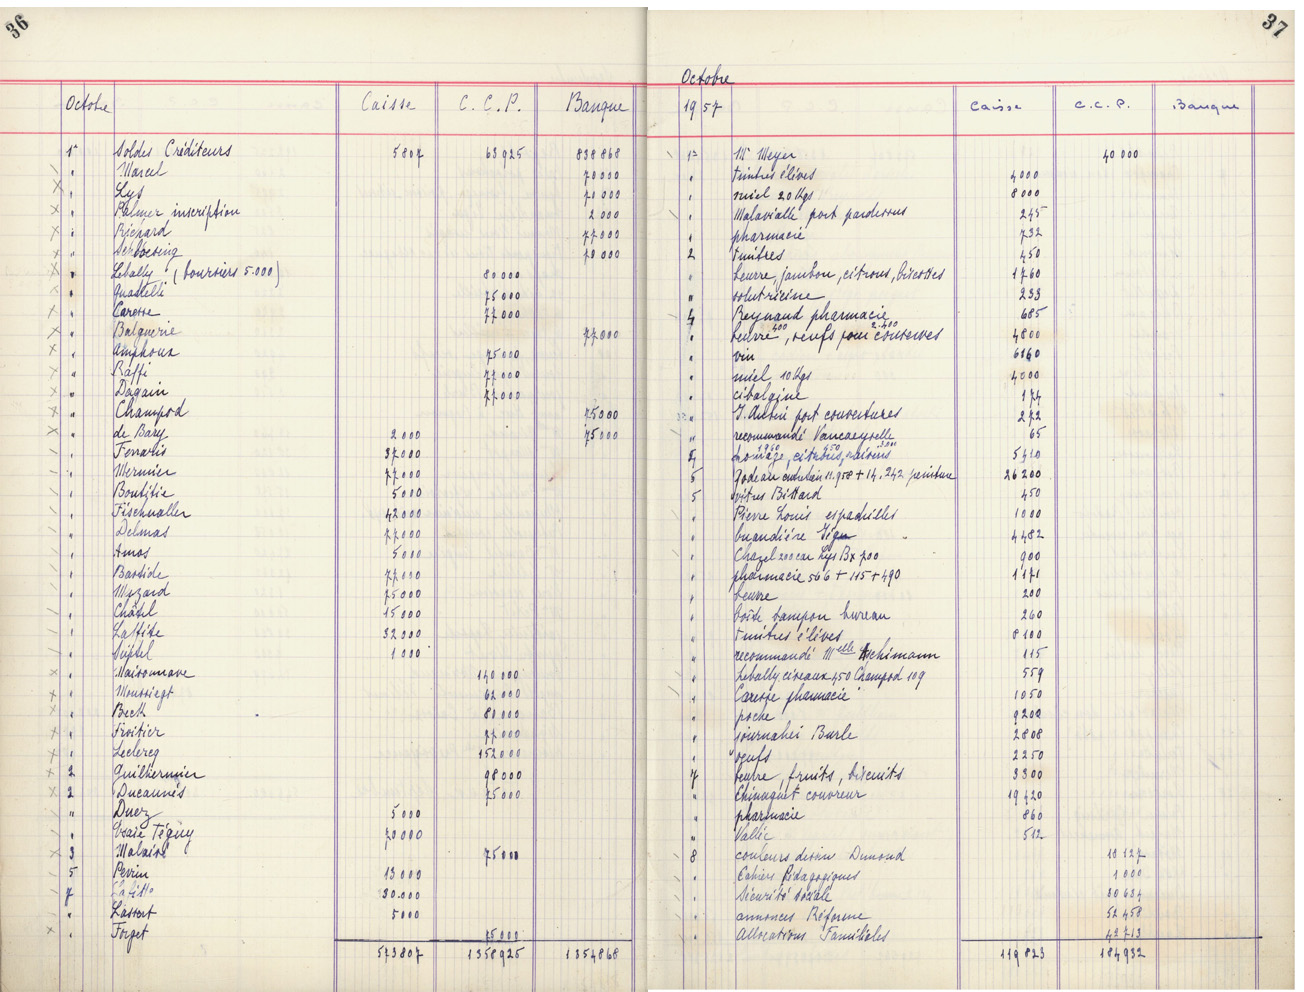 36
Octobre Caisse C.C.P. Banque
1er Soldes Créditeurs 5807 63925 838868
" Marcel 70000
" Lys 70000
" Palmer inscription 2000
" Richard 77000
" Schloesing 70000
" Lebally (boursiers 5.000) 80000
" Guastelli 75000
" Caresse 77000
" Balguerie 77000
" Amphoux 75000
" Raffi 77000
" Dagain 77000
" Champod 75000
" de Bary 2000 75000
" Ferraris 37000
" Mermier 77000
" Bontitie 5000
" Fischvaller 42000
" Delmas 77000
" Amos 5000
" Bastide 77000
" Muzard 75000
" Châtel 15000
" Laffite 32000
" 1000
" Maisonnave 140000
" Moussiegt 62000
" Beck 80000
" Froitier 77000
" Leclercq 152000
2 Guilhermier 98000
2 Ducaunès 75000
" Duez 5000
" Téguy 70000
3 75000
5 Perrin 13000
7 Lafitte 30.000
" Lassort 5000
" Forget 75000
573807 1358925 1354868
37
Octobre
1957 Caisse C.C.P. Banque
1er Mr Meyer 40000
" timbres élèves 4000
" miel 20 Kgs 8000
" Malavialle port pardessus 245
" pharmacie 732
2 timbres 450
" beurre, jambon, citrons, biscottes 1760
" solutricine 233
4 Reynaud pharmacie 685
" beurre 400, oeufs pour conserves 2.400 4800
" vin 6160
" miel 10 Kgs 4000
" cibalgine 174
" port couvertures 272
" recommandé 65
5 fromage, citrons, raisins 5410
5 Godeau entretien 11.958 + 14.242 peinture 26200
5 vitres Bittard 450
" Pierre Louis espadrilles 1000
" buandière 4482
" Chazel 200 car Lys Bx 700 900
" pharmacie 566 + 115 + 490 1171
" beurre 200
" boîte tampon bureau 260
" timbres élèves 8100
" recommandé Melle 115
" Lebally ciseaux 450 Champod 109 559
" Caresse pharmacie 1050
" poche 9200
" Burle 2808
" oeufs 2250
7 beurre, fruits, biscuits 3300
" couvreur 19420
" pharmacie 860
" Vallée 512
8 couleurs dessin Dumond 18127
" Cahiers Pédagogiques 1000
" Sécurité sociale 30634
" annonces Réforme 52458
" Allocations Familiales 42713
119823 184932